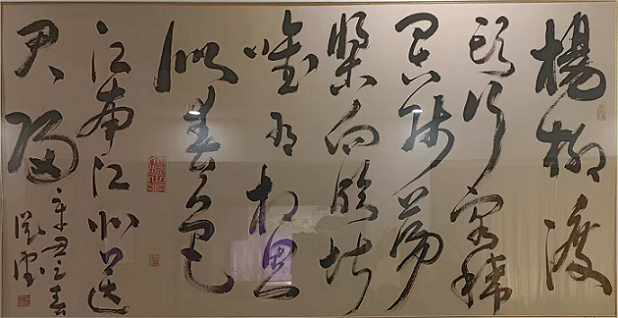 楊柳渡
頭行客稀
罟師蕩
槳向臨圻
唯有相思
似春色
江南江北送
君歸
辛丑之春